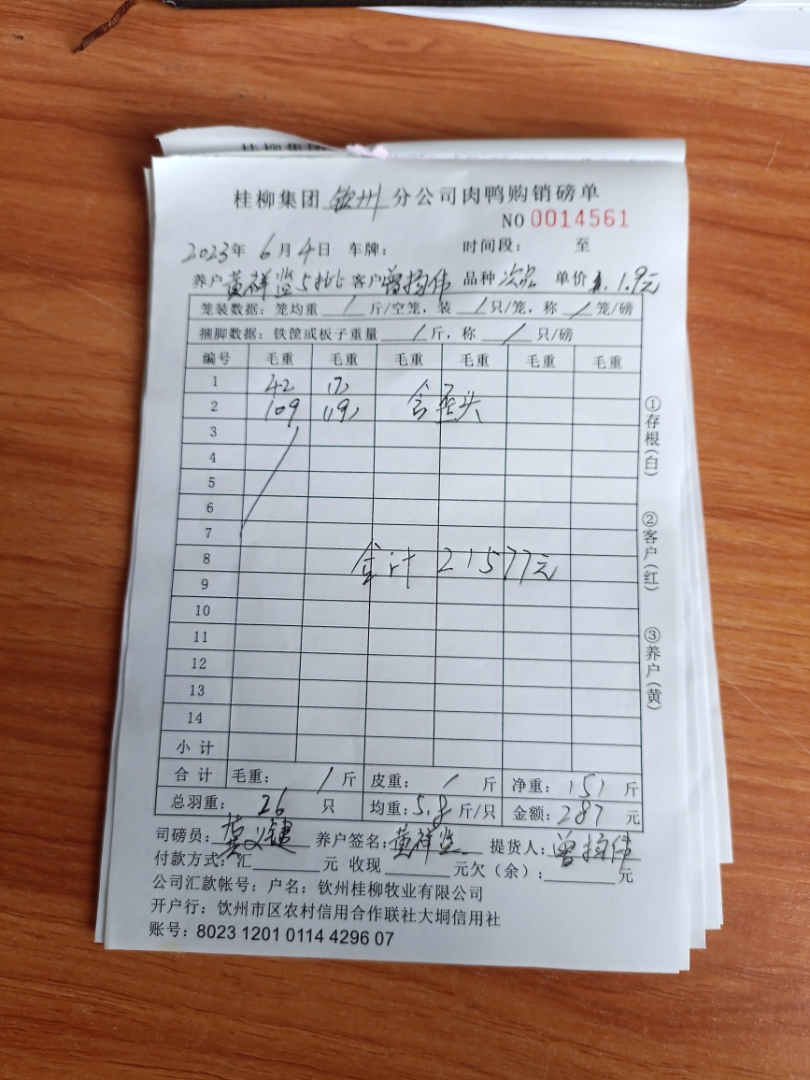 桂柳集团钦州分公司肉鸭购销磅单
NO 0014561
2023年6月4日 车牌： 时间段： 至
养户黄祥益5批 客户曾培伟 品种次品 单价1.9元
笼装数据：笼均重/斤/空笼，装/只/笼，称/笼/磅
捆脚数据：铁筐或板子重量/斤，称/只/磅
编号 毛重 毛重 毛重 毛重 毛重 毛重
1 42 (7)
2 109 (19) 含歪头
3
4
5
6
7
8 合计 21577元
9
10
11
12
13
14
小计
合计 毛重：/斤 皮重：/斤 净重：151斤
总羽重：26只 均重：5.8斤/只 金额：287元
司磅员： 养户签名：黄祥益 提货人：曾培伟
付款方式：汇 元 收现 元欠（余）： 元
公司汇款帐号：户名：钦州桂柳牧业有限公司
开户行：钦州市区农村信用合作联社大垌信用社
账号：8023 1201 0114 4296 07
①存根（白）
②客户（红）
③养户（黄）